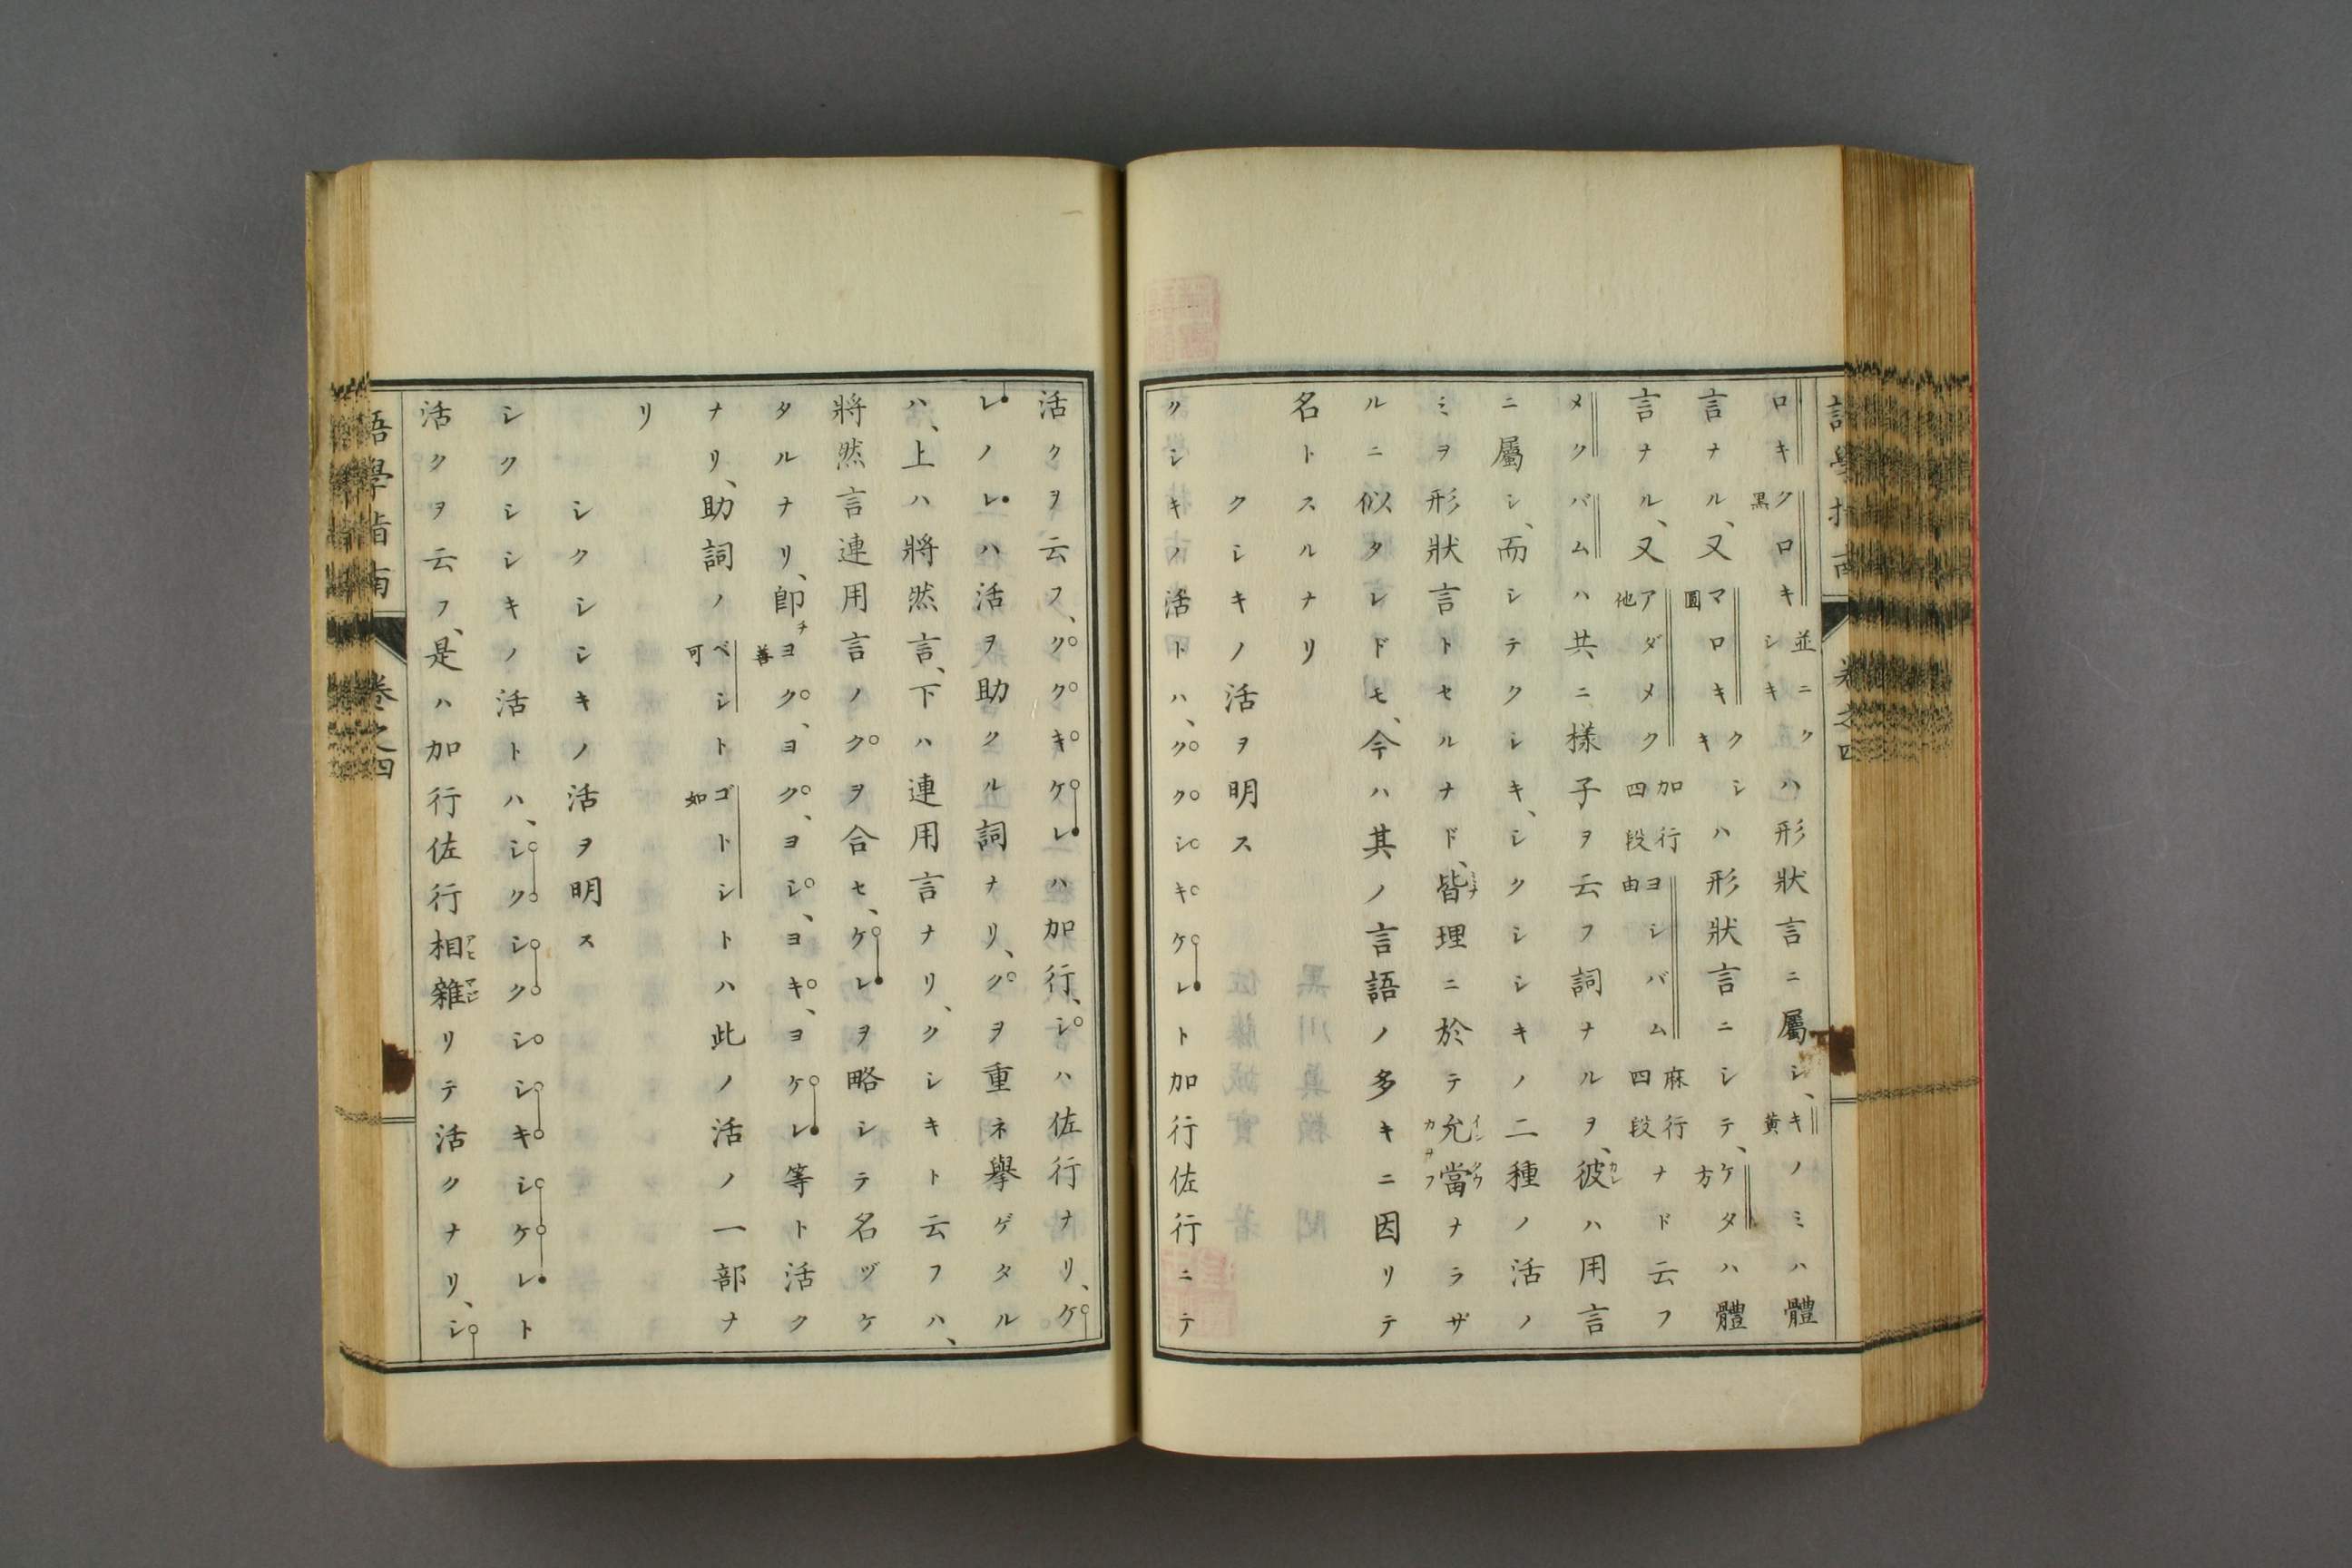 ロキ黒クロキ並ニクシキハ形狀言ニ屬シ、キ黄ノミハ體
言ナル、又マロキ圓クシキハ形狀言ニシテ、ケタ方ハ體
言ナル、又アダメク他加行四段ヨシバム由麻行四段ナド云フ
メクバムハ共ニ樣子ヲ云フ詞ナルヲ、彼カレハ用言
ニ屬シ、而シテクシキ、シクシシキノ二種ノ活ノ
ミヲ形狀言トセルナド、皆ミナ理ニ於テ允當ナラザ
ルニ似タレドモ、今ハ其ノ言語ノ多キニ因リテ
名トスルナリ
クシキノ活ヲ明ス
クシキノ活トハ、ククシキケレト加行佐行ニテ
活クヲ云フ、ククキケレハ加行、シハ佐行ナリ、ケ
レノレハ活ヲ助クル詞ナリ、クヲ重ネ擧ゲタル
ハ、上ハ將然言、下ハ連用言ナリ、クシキト云フハ、
將然言連用言ノクヲ合セ、ケレヲ略シテ名ヅケ
タルナリ、卽チヨク善、ヨク、ヨシ、ヨキ、ヨケレ等ト活ク
ナリ、助詞ノベシ可トゴトシ如トハ此ノ活ノ一部ナ
リ
シクシシキノ活ヲ明ス
シクシシキノ活トハ、シクシクシシキシケレト
活クヲ云フ、是ハ加行佐行相アヒ雜マジリテ活クナリ、シ
語學指南
卷之四